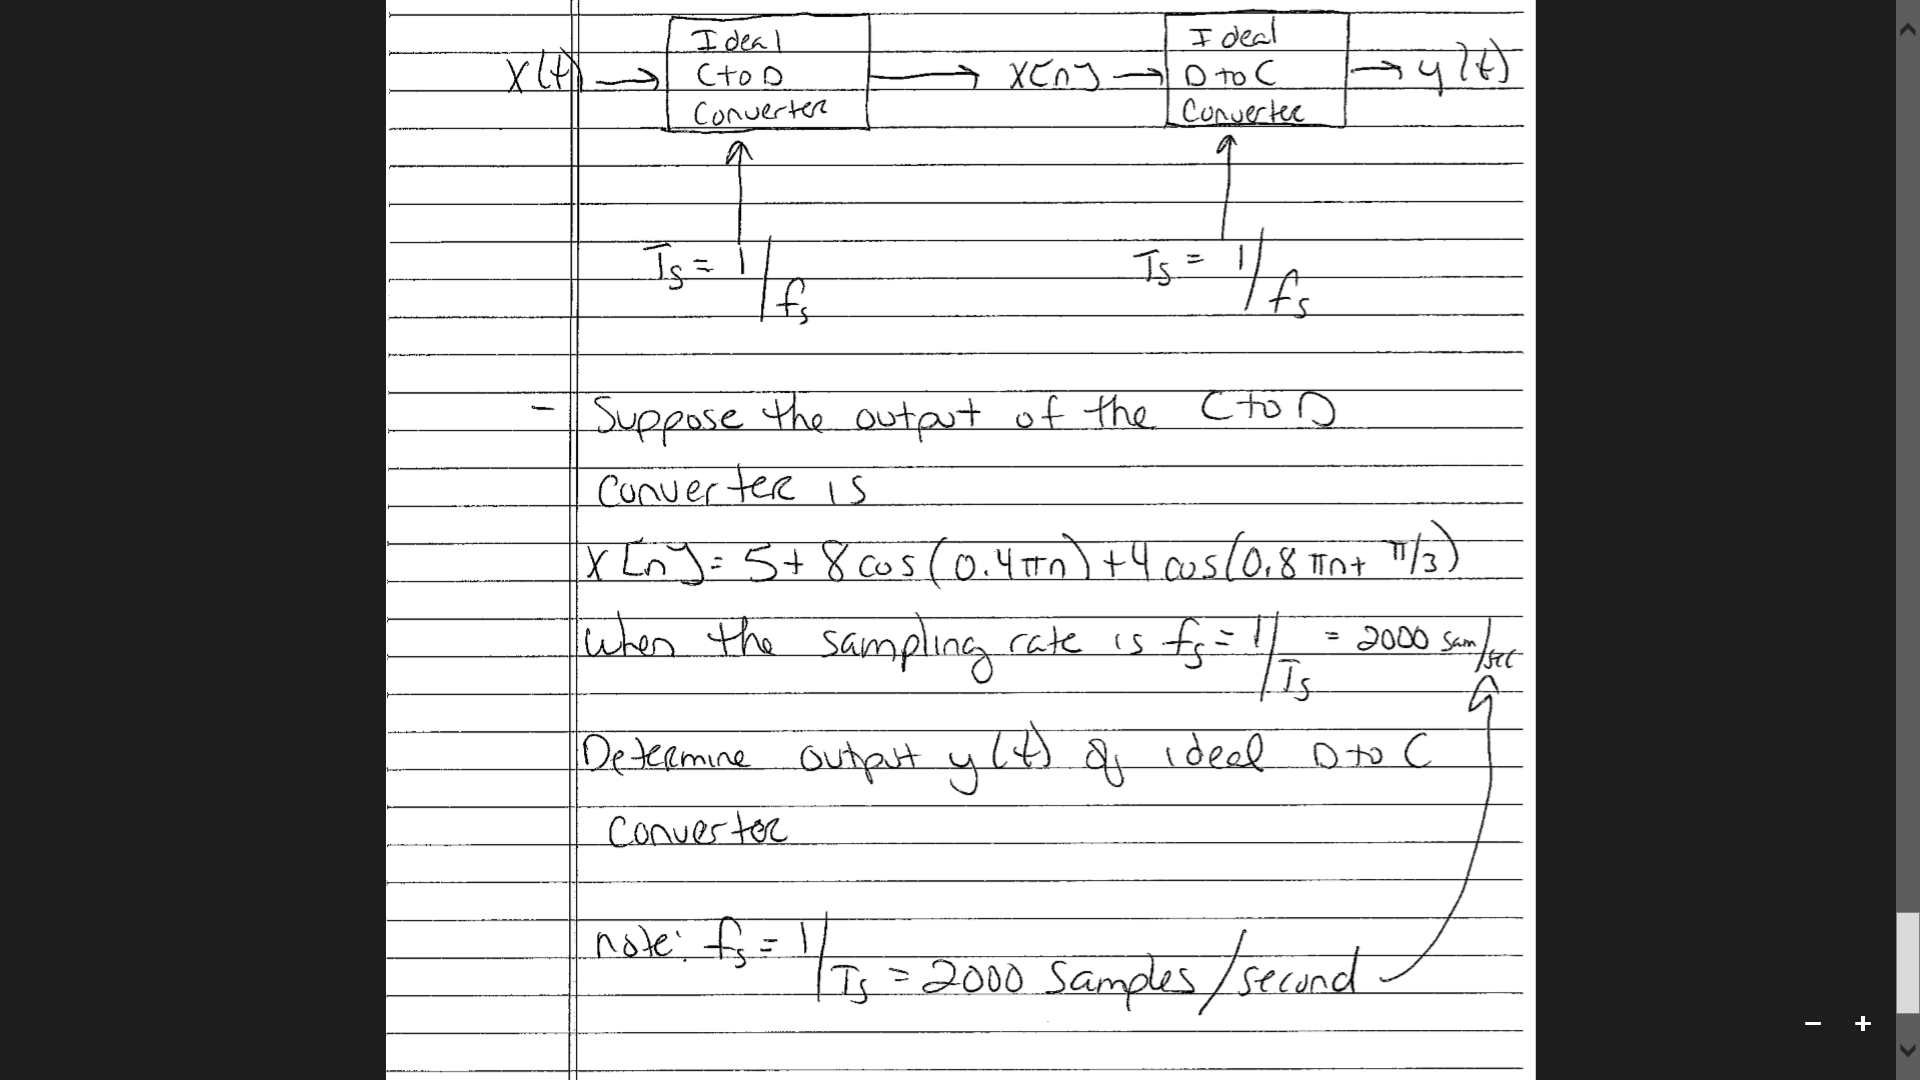 Ideal Ideal
x(t) → C to D → x[n] → D to C → y(t)
Converter Converter
Ts = 1/fs Ts = 1/fs
- Suppose the output of the C to D
converter is
x[n] = 5 + 8 cos(0.4πn) + 4 cos(0.8πn + π/3)
when the sampling rate is fs = 1/Ts = 2000 sam/sec
Determine output y(t) of ideal D to C
converter
note: fs = 1/Ts = 2000 samples/second
- +